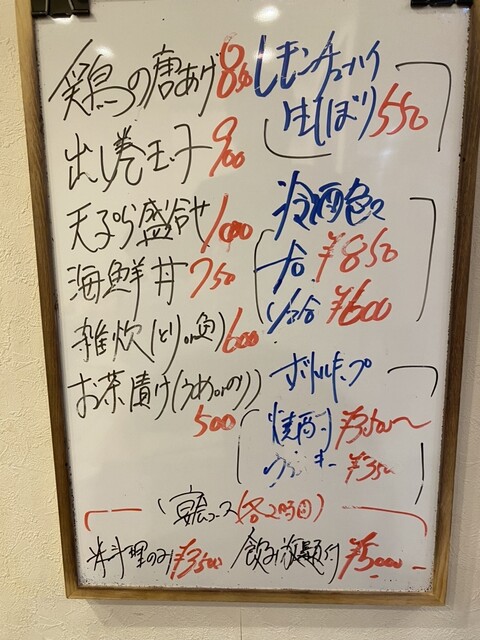 鶏の唐あげ 850
出し巻玉子 900
天ぷら盛合せ 1000
海鮮丼 750
雑炊(とりor魚) 600
お茶漬け(うめorのり)
500
レモンチューハイ
生しぼり 550
冷酒色々
一合 ¥850
1/2合 ¥600
ボトルキープ
焼酎 ¥3500〜
ウイスキー ¥350
宴会コース(各2時間)
お料理のみ¥3500 飲み放題付 ¥5000